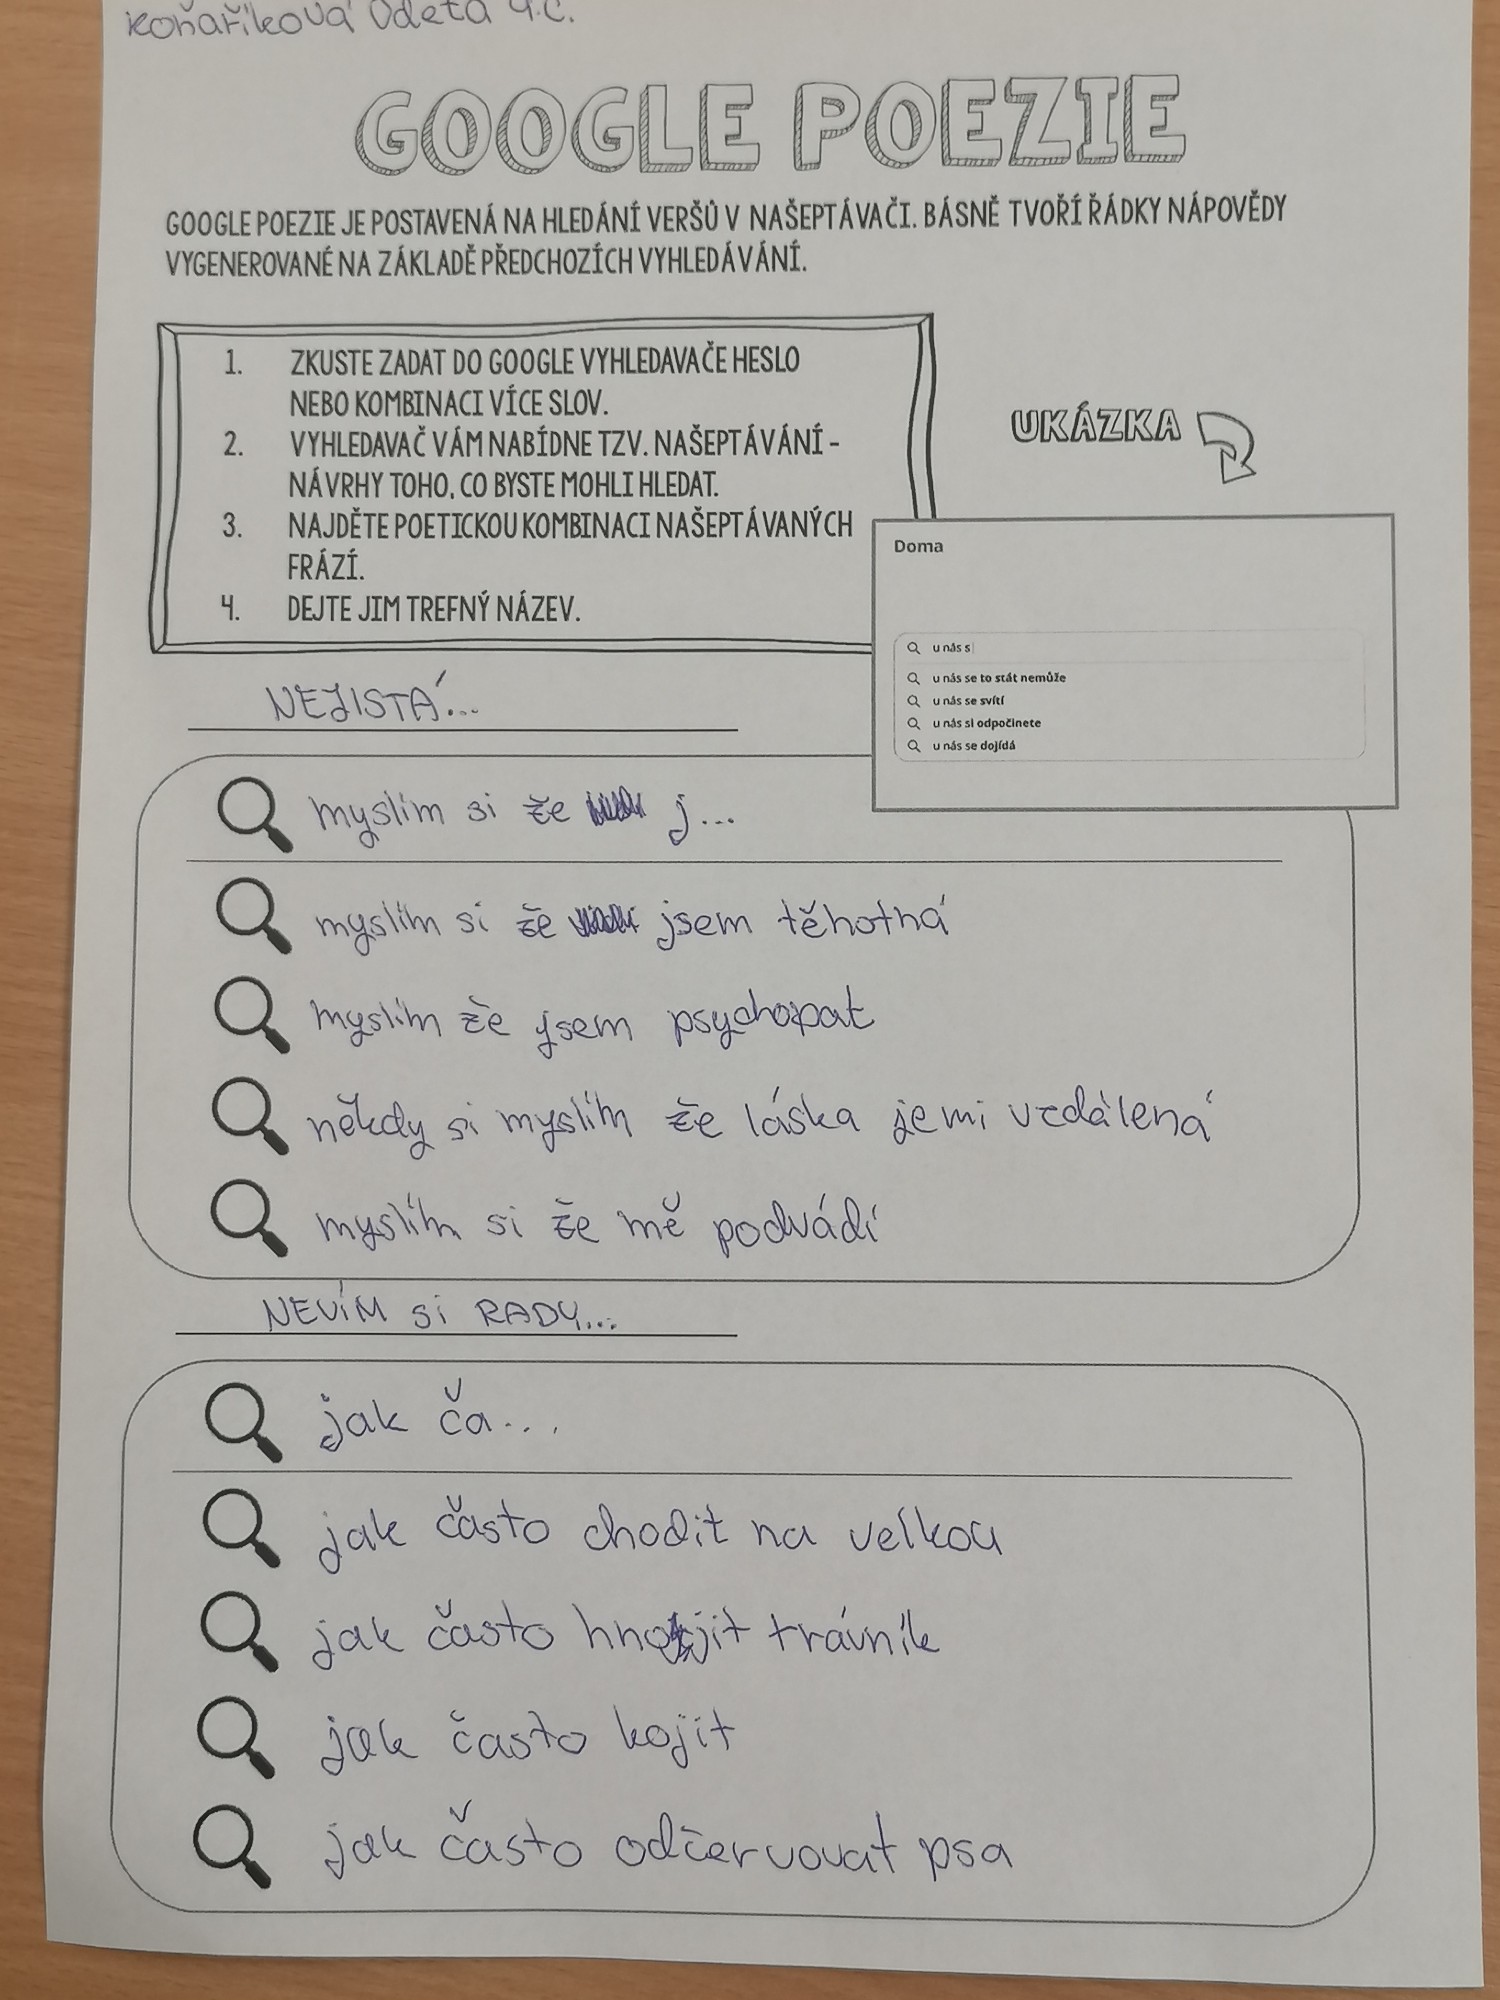 Koňaříková Odeta 4.C.
GOOGLE POEZIE
GOOGLE POEZIE JE POSTAVENÁ NA HLEDÁNÍ VERŠŮ V NAŠEPTÁVAČI. BÁSNĚ TVOŘÍ ŘÁDKY NÁPOVĚDY
VYGENEROVANÉ NA ZÁKLADĚ PŘEDCHOZÍCH VYHLEDÁVÁNÍ.
1. ZKUSTE ZADAT DO GOOGLE VYHLEDAVAČE HESLO
NEBO KOMBINACI VÍCE SLOV.
2. VYHLEDAVAČ VÁM NABÍDNE TZV. NAŠEPTÁVÁNÍ -
NÁVRHY TOHO, CO BYSTE MOHLI HLEDAT.
3. NAJDĚTE POETICKOU KOMBINACI NAŠEPTÁVANÝCH
FRÁZÍ.
4. DEJTE JIM TREFNÝ NÁZEV.
UKÁZKA
Doma
u nás s
u nás se to stát nemůže
u nás se svítí
u nás si odpočinete
u nás se dojídá
NEJISTÁ...
myslím si že j...
myslím si že jsem těhotná
myslím že jsem psychopat
někdy si myslím že láska je mi vzdálená
myslím si že mě podvádí
NEVÍM si RADY...
jak ča...
jak často chodit na velkou
jak často hnojit trávník
jak často kojit
jak často odčervovat psa